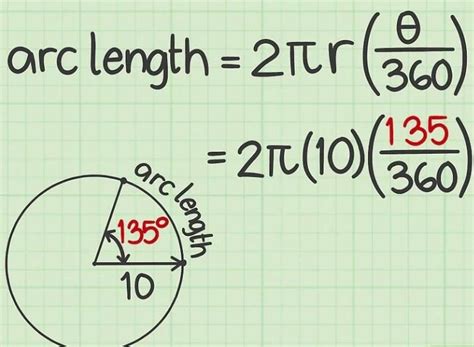 arc length = 2πr(θ/360)
= 2π(10)(135/360)
arc length
135°
10